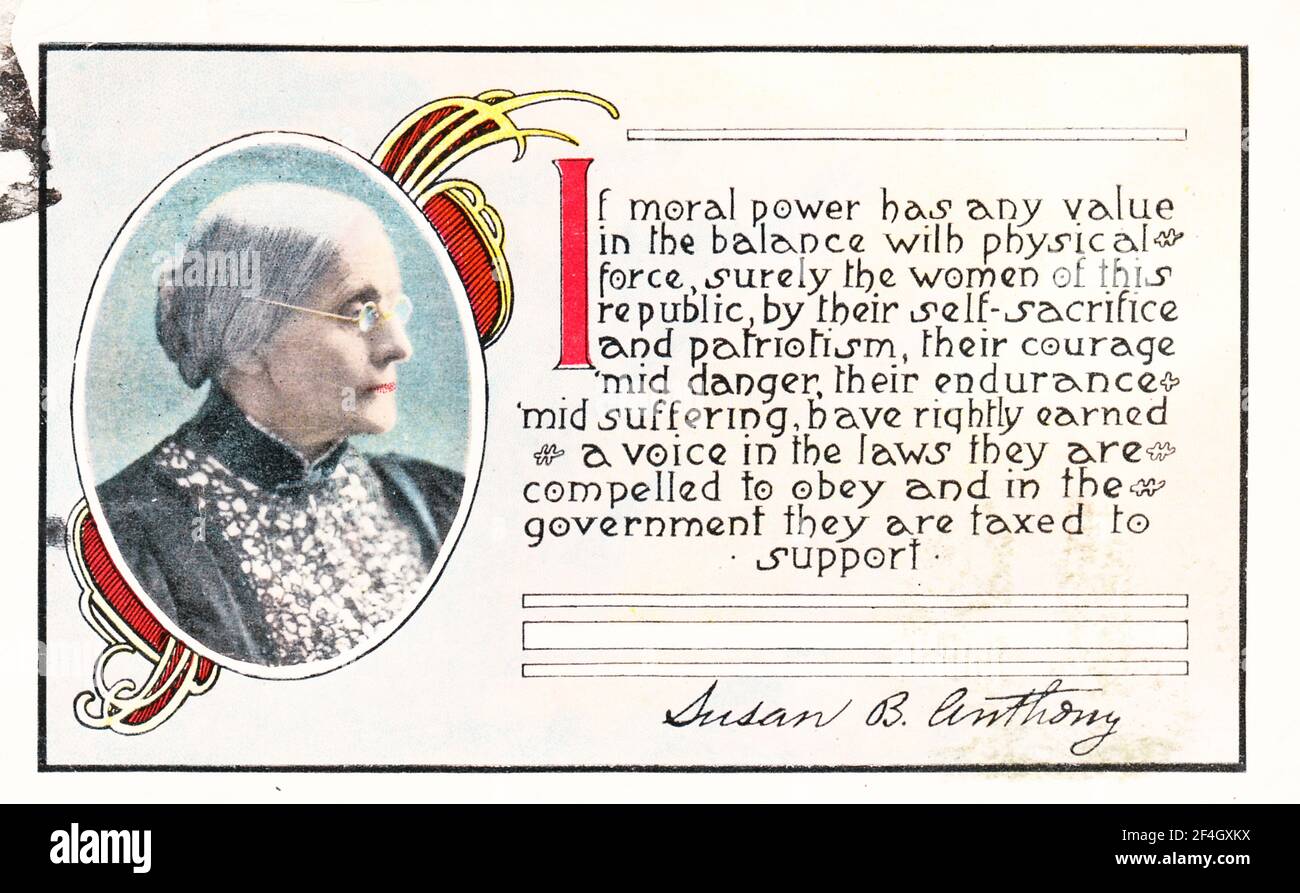 If moral power has any value
in the balance with physical
force, surely the women of this
republic, by their self-sacrifice
and patriotism, their courage
'mid danger, their endurance
'mid suffering, have rightly earned
a voice in the laws they are
compelled to obey and in the
government they are taxed to
· support ·
Susan B. Anthony
alamy
Image ID: 2F4GXKX
www.alamy.com